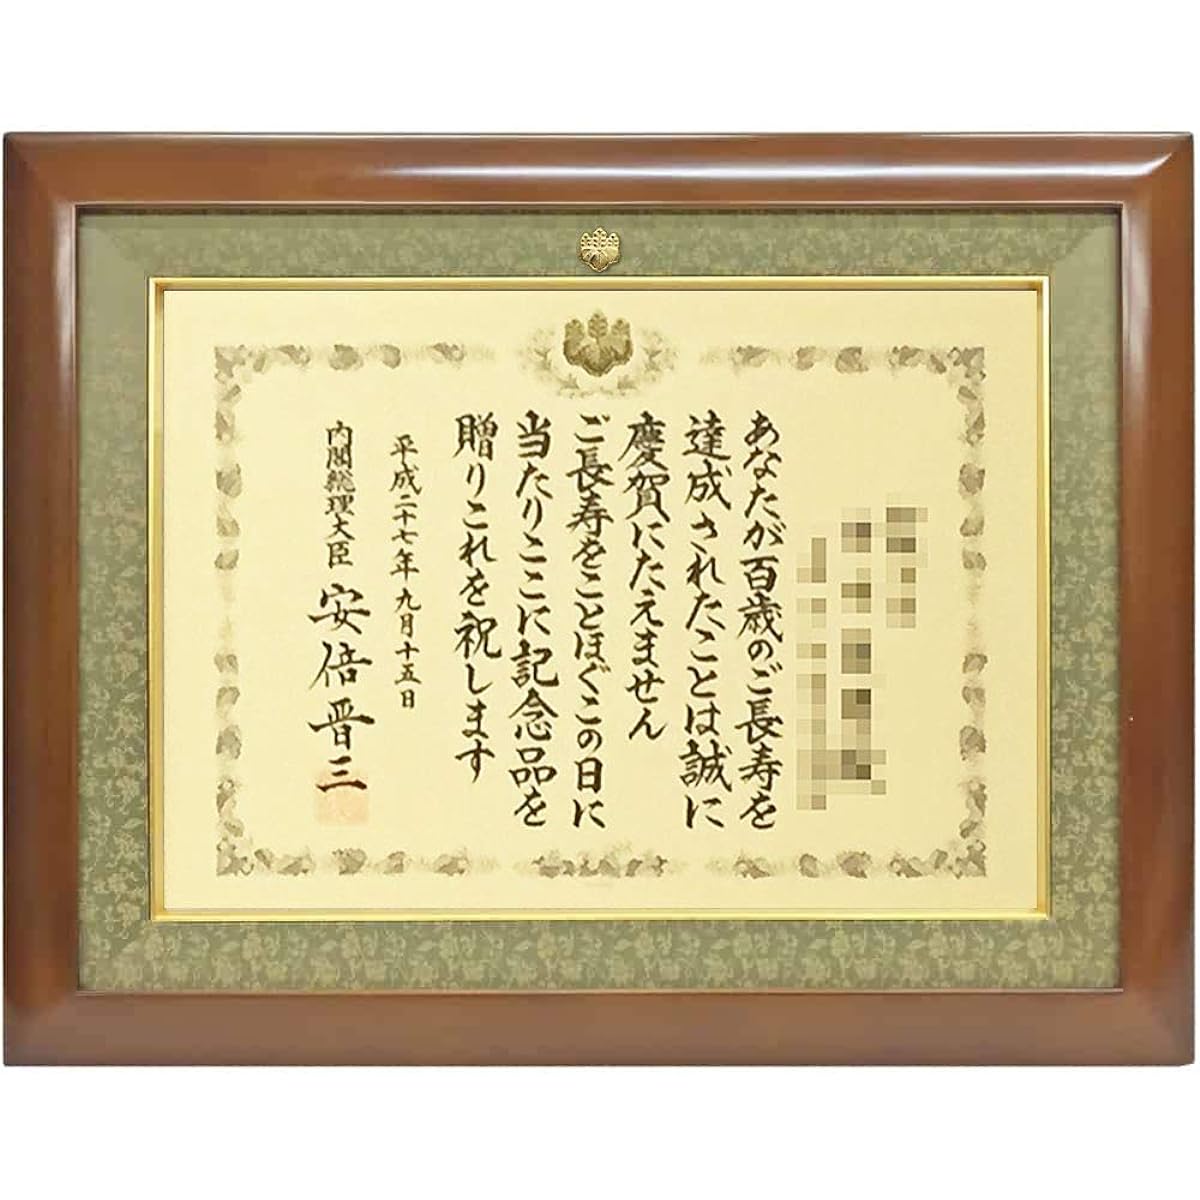 あなたが百歳のご長寿を
達成されたことは誠に
慶賀にたえません
ご長寿をことほぐこの日に
当たりここに記念品を
贈りこれを祝します
平成二十七年九月十五日
内閣総理大臣 安倍晋三